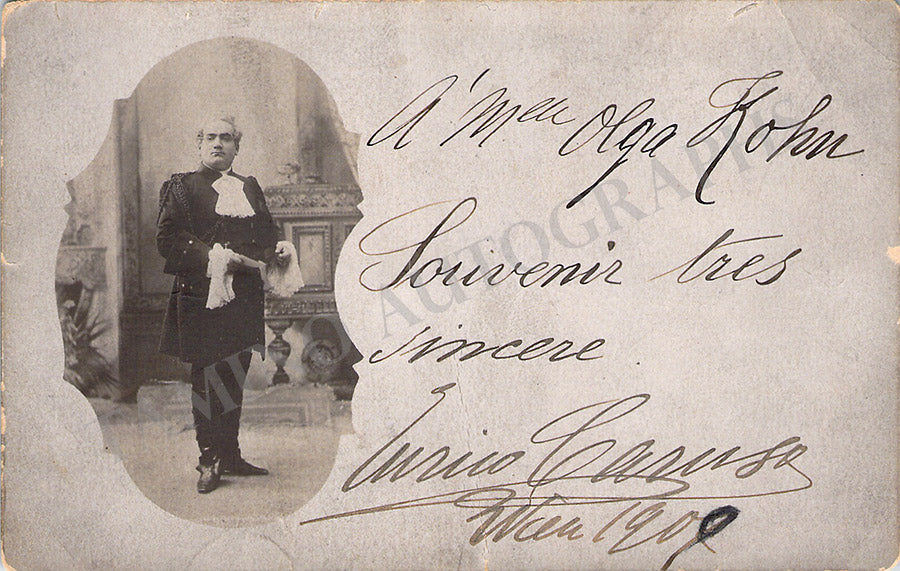 A' Mell Olga Kohn
Souvenir tres
sincere
Enrico Caruso
Wien 1909
TAMINO AUTOGRAPHS